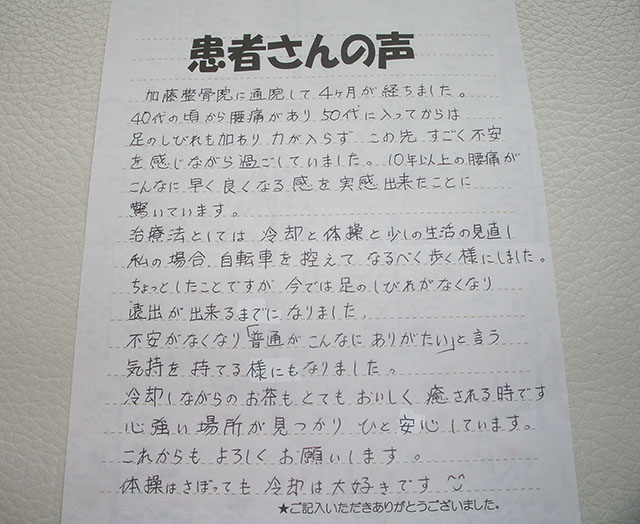 患者さんの声
加藤整骨院に通院して 4ヶ月が 経ちました。
40代の頃から腰痛があり 50代に入ってからは
足のしびれも加わり 力が入らず この先 すごく不安
を感じながら過ごしていました。10年以上の腰痛が
こんなに 早く 良くなる 感を 実感 出来たことに
驚いています。
治療法としては 冷却と体操と少しの生活の見直し
私の場合 自転車を控えて なるべく歩く様にしました。
ちょっとしたことですが 今では足のしびれがなくなり
遠出が出来るまでになりました。
不安がなくなり「普通がこんなに ありがたい」と言う
気持を持てる様にもなりました。
冷却しながらの お茶も とても おいしく 癒される時です
心強い場所が見つかり ひと安心しています。
これからも よろしく お願いします。
体操はさぼっても 冷却は大好きです
★ご記入いただきありがとうございました。